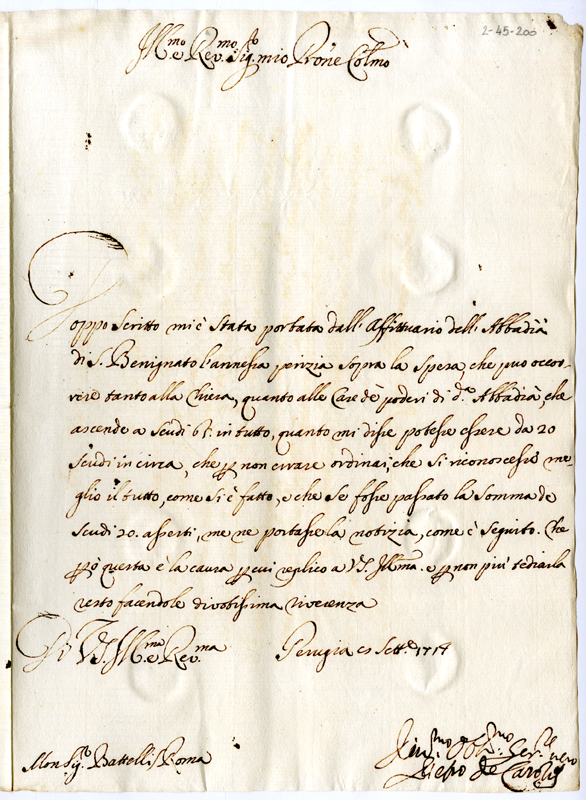 2-45-200
Ill.mo e Rev.mo Sig.r mio P'rone Col.mo
Doppo scritto mi è stata portata dall'Affittuario dell'Abbadia
di S. Benignato l'annessa perizia sopra la spesa, che può occor-
rere tanto alla Chiesa, quanto alle Case de poderi di d.a Abbadia, che
ascende a scudi 65. in tutto, quanto mi disse potesse essere da 20
scudi in circa, che p non errare ordinai, che si riconoscesse me-
glio il tutto, come si è fatto, e che se fosse passato la somma de
scudi 20. asserti, me ne portasse la notizia, come è seguito. Che
p.ò questa è la causa p cui replico a V.S. Ill.ma. e p non più tediarla
resto facendole divotissima riverenza
Di V.S. Ill.ma e Rev.ma Perugia Sett.e 1714
Mons.r Battelli Roma
Div.mo Obl.mo Ser.re vero
Pietro de Carolis